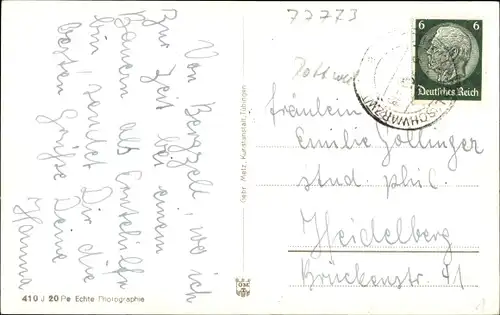 77773
6 6
Deutsches Reich
(SCHWARZW
Von Bergzell, wo ich
zur Zeit bei einem
Bauern als Erntehilfe
bin, sendet Dir die
besten Grüße Deine
Hanna
Gebr. Metz, Kunstanstalt, Tübingen
Fräulein
Emilie Zollinger
stud. phil.
Heidelberg
Brückenstr. 41
410 J 20 Pe Echte Photographie